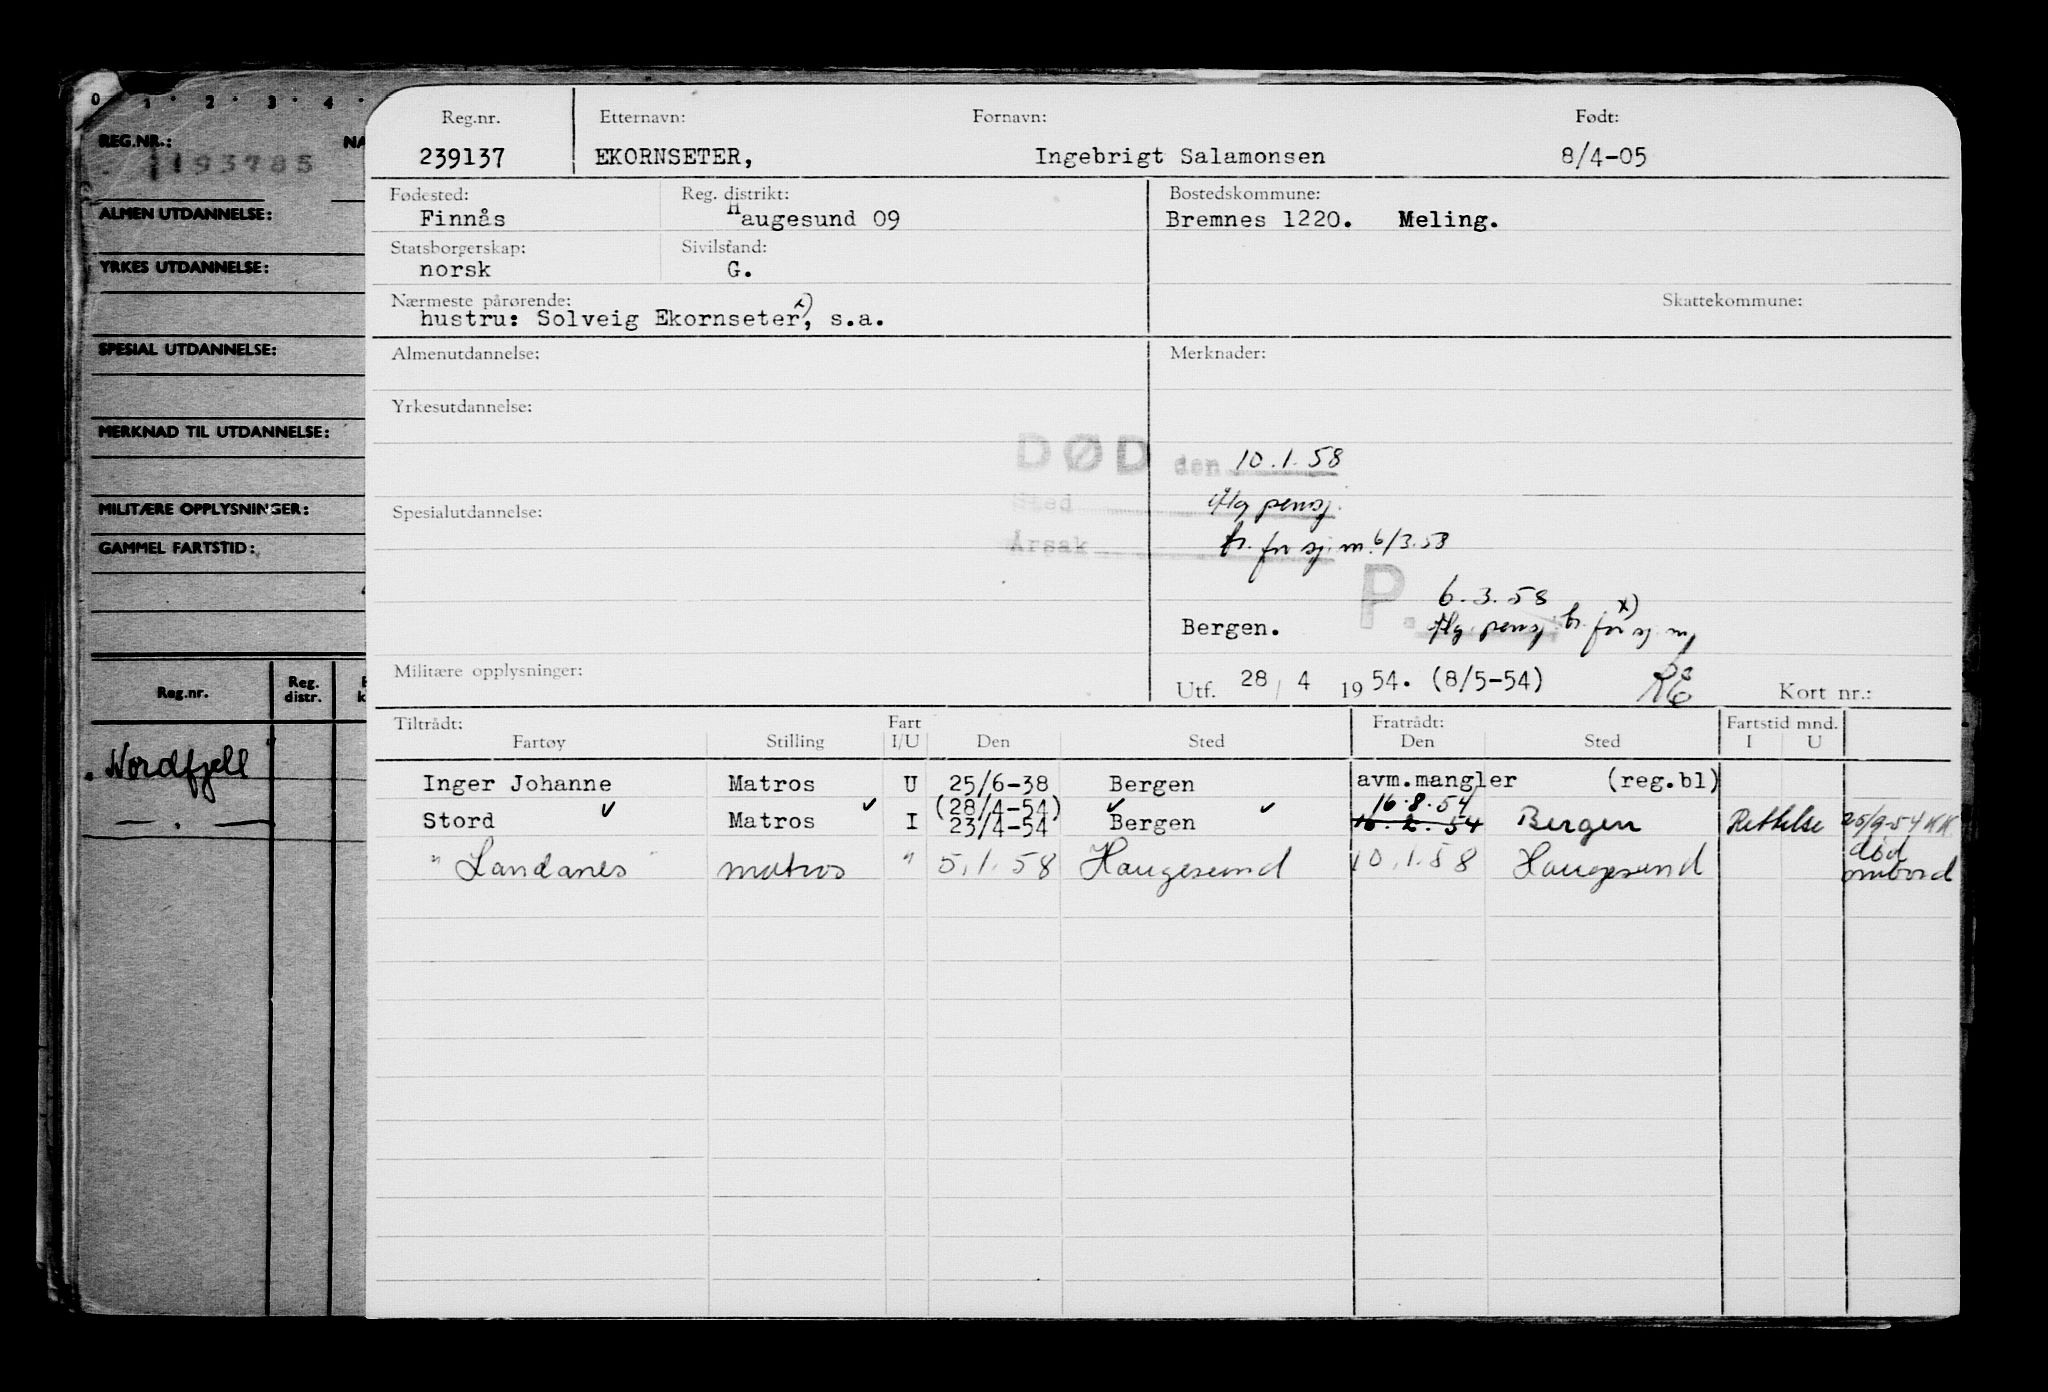 0 1 2 3 4
REG.NR.:
NA
193785
ALMEN UTDANNELSE:
YRKES UTDANNELSE:
SPESIAL UTDANNELSE:
MERKNAD TIL UTDANNELSE:
MILITÆRE OPPLYSNINGER:
GAMMEL FARTSTID:
Reg.nr. Reg. distr.
"Nordfjell"
— " —
Reg.nr. Etternavn: Fornavn: Født:
239137 EKORNSETER, Ingebrigt Salamonsen 8/4-05
Fødested: Reg. distrikt: Bostedskommune:
Finnås Haugesund 09 Bremnes 1220. Meling.
Statsborgerskap: Sivilstand:
norsk G.
Nærmeste pårørende: Skattekommune:
hustru: Solveig Ekornseter x), s.a.
Almenutdannelse: Merknader:
Yrkesutdannelse:
DØD den 10.1.58
Spesialutdannelse: Sted iflg pensj.
Årsak tr. for sj.m. 6/3.58
P. 6.3.58
Bergen. iflg. pensj. tr. for x) sj. m
Militære opplysninger:
Utf. 28 / 4 1954. (8/5-54) Kort nr.:
Tiltrådt: Fart Fratrådt: Fartstid mnd.
Fartøy Stilling I/U Den Sted Den Sted I U
Inger Johanne Matros U 25/6-38 Bergen avm.mangler (reg.bl)
(28/4-54) 16.8.54
Stord Matros I 23/4-54 Bergen 54 Bergen Rettelse 25/9-54 KK
" Landanes " matros " 5.1.58 Haugesund 10.1.58 Haugesund død ombord